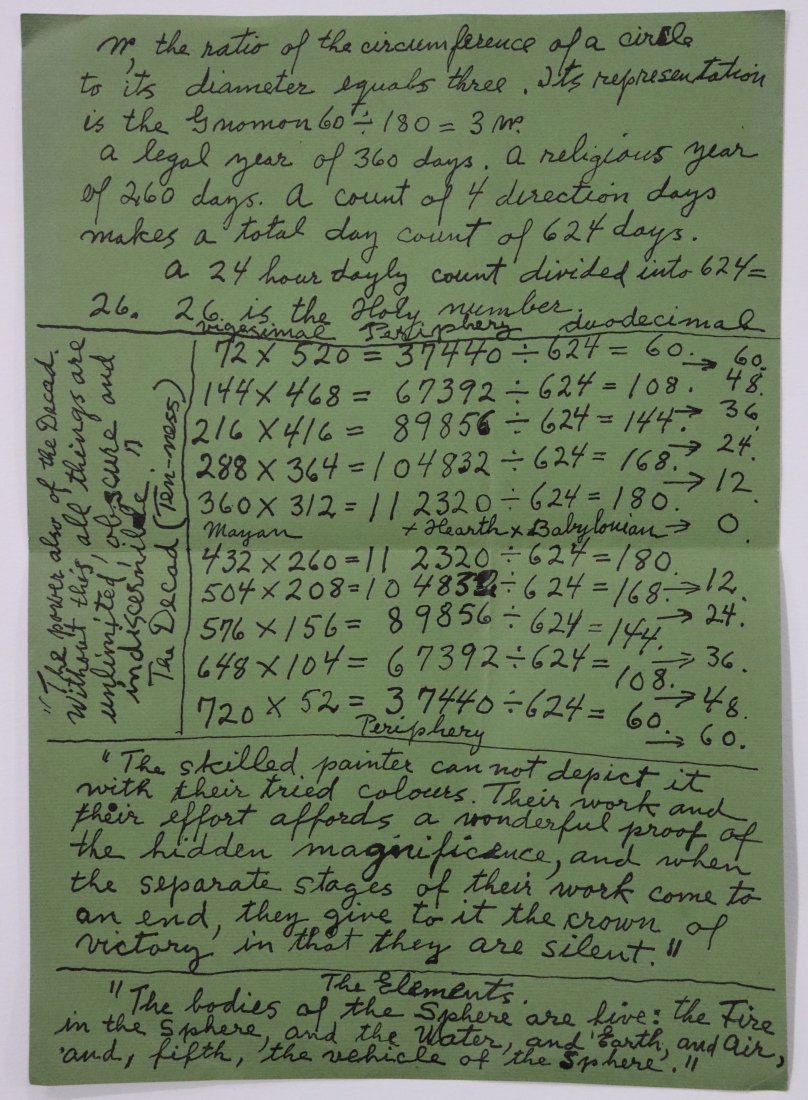 π, the ratio of the circumference of a circle
to its diameter equals three. Its representation
is the Gnomon 60 ÷ 180 = 3 π.
A legal year of 360 days. A religious year
of 260 days. A count of 4 direction days
makes a total day count of 624 days.
A 24 hour dayly count divided into 624 =
26. 26 is the Holy number.
vigesimal Periphery duodecimal
72 × 520 = 37440 ÷ 624 = 60. → 60.
144 × 468 = 67392 ÷ 624 = 108. 48.
216 × 416 = 89856 ÷ 624 = 144. → 36.
288 × 364 = 104832 ÷ 624 = 168. → 24.
360 × 312 = 112320 ÷ 624 = 180. → 12.
Mayan + Hearth × Babylonian → 0.
432 × 260 = 112320 ÷ 624 = 180.
504 × 208 = 104832 ÷ 624 = 168. → 12.
576 × 156 = 89856 ÷ 624 = 144. → 24.
648 × 104 = 67392 ÷ 624 = 108. → 36.
720 × 52 = 37440 ÷ 624 = 60. → 48.
Periphery → 60.
"The power also of the Decad.
Without this all things are
unlimited, obscure and
indiscernible."
The Decad (Ten-ness)
"The skilled painter can not depict it
with their tried colours. Their work and
their effort affords a wonderful proof of
the hidden magnificence, and when
the separate stages of their work come to
an end, they give to it the crown of
victory in that they are silent."
The Elements.
"The bodies of the Sphere are five: the Fire
in the Sphere, and the Water, and Earth, and Air,
and, fifth, the vehicle of the Sphere."